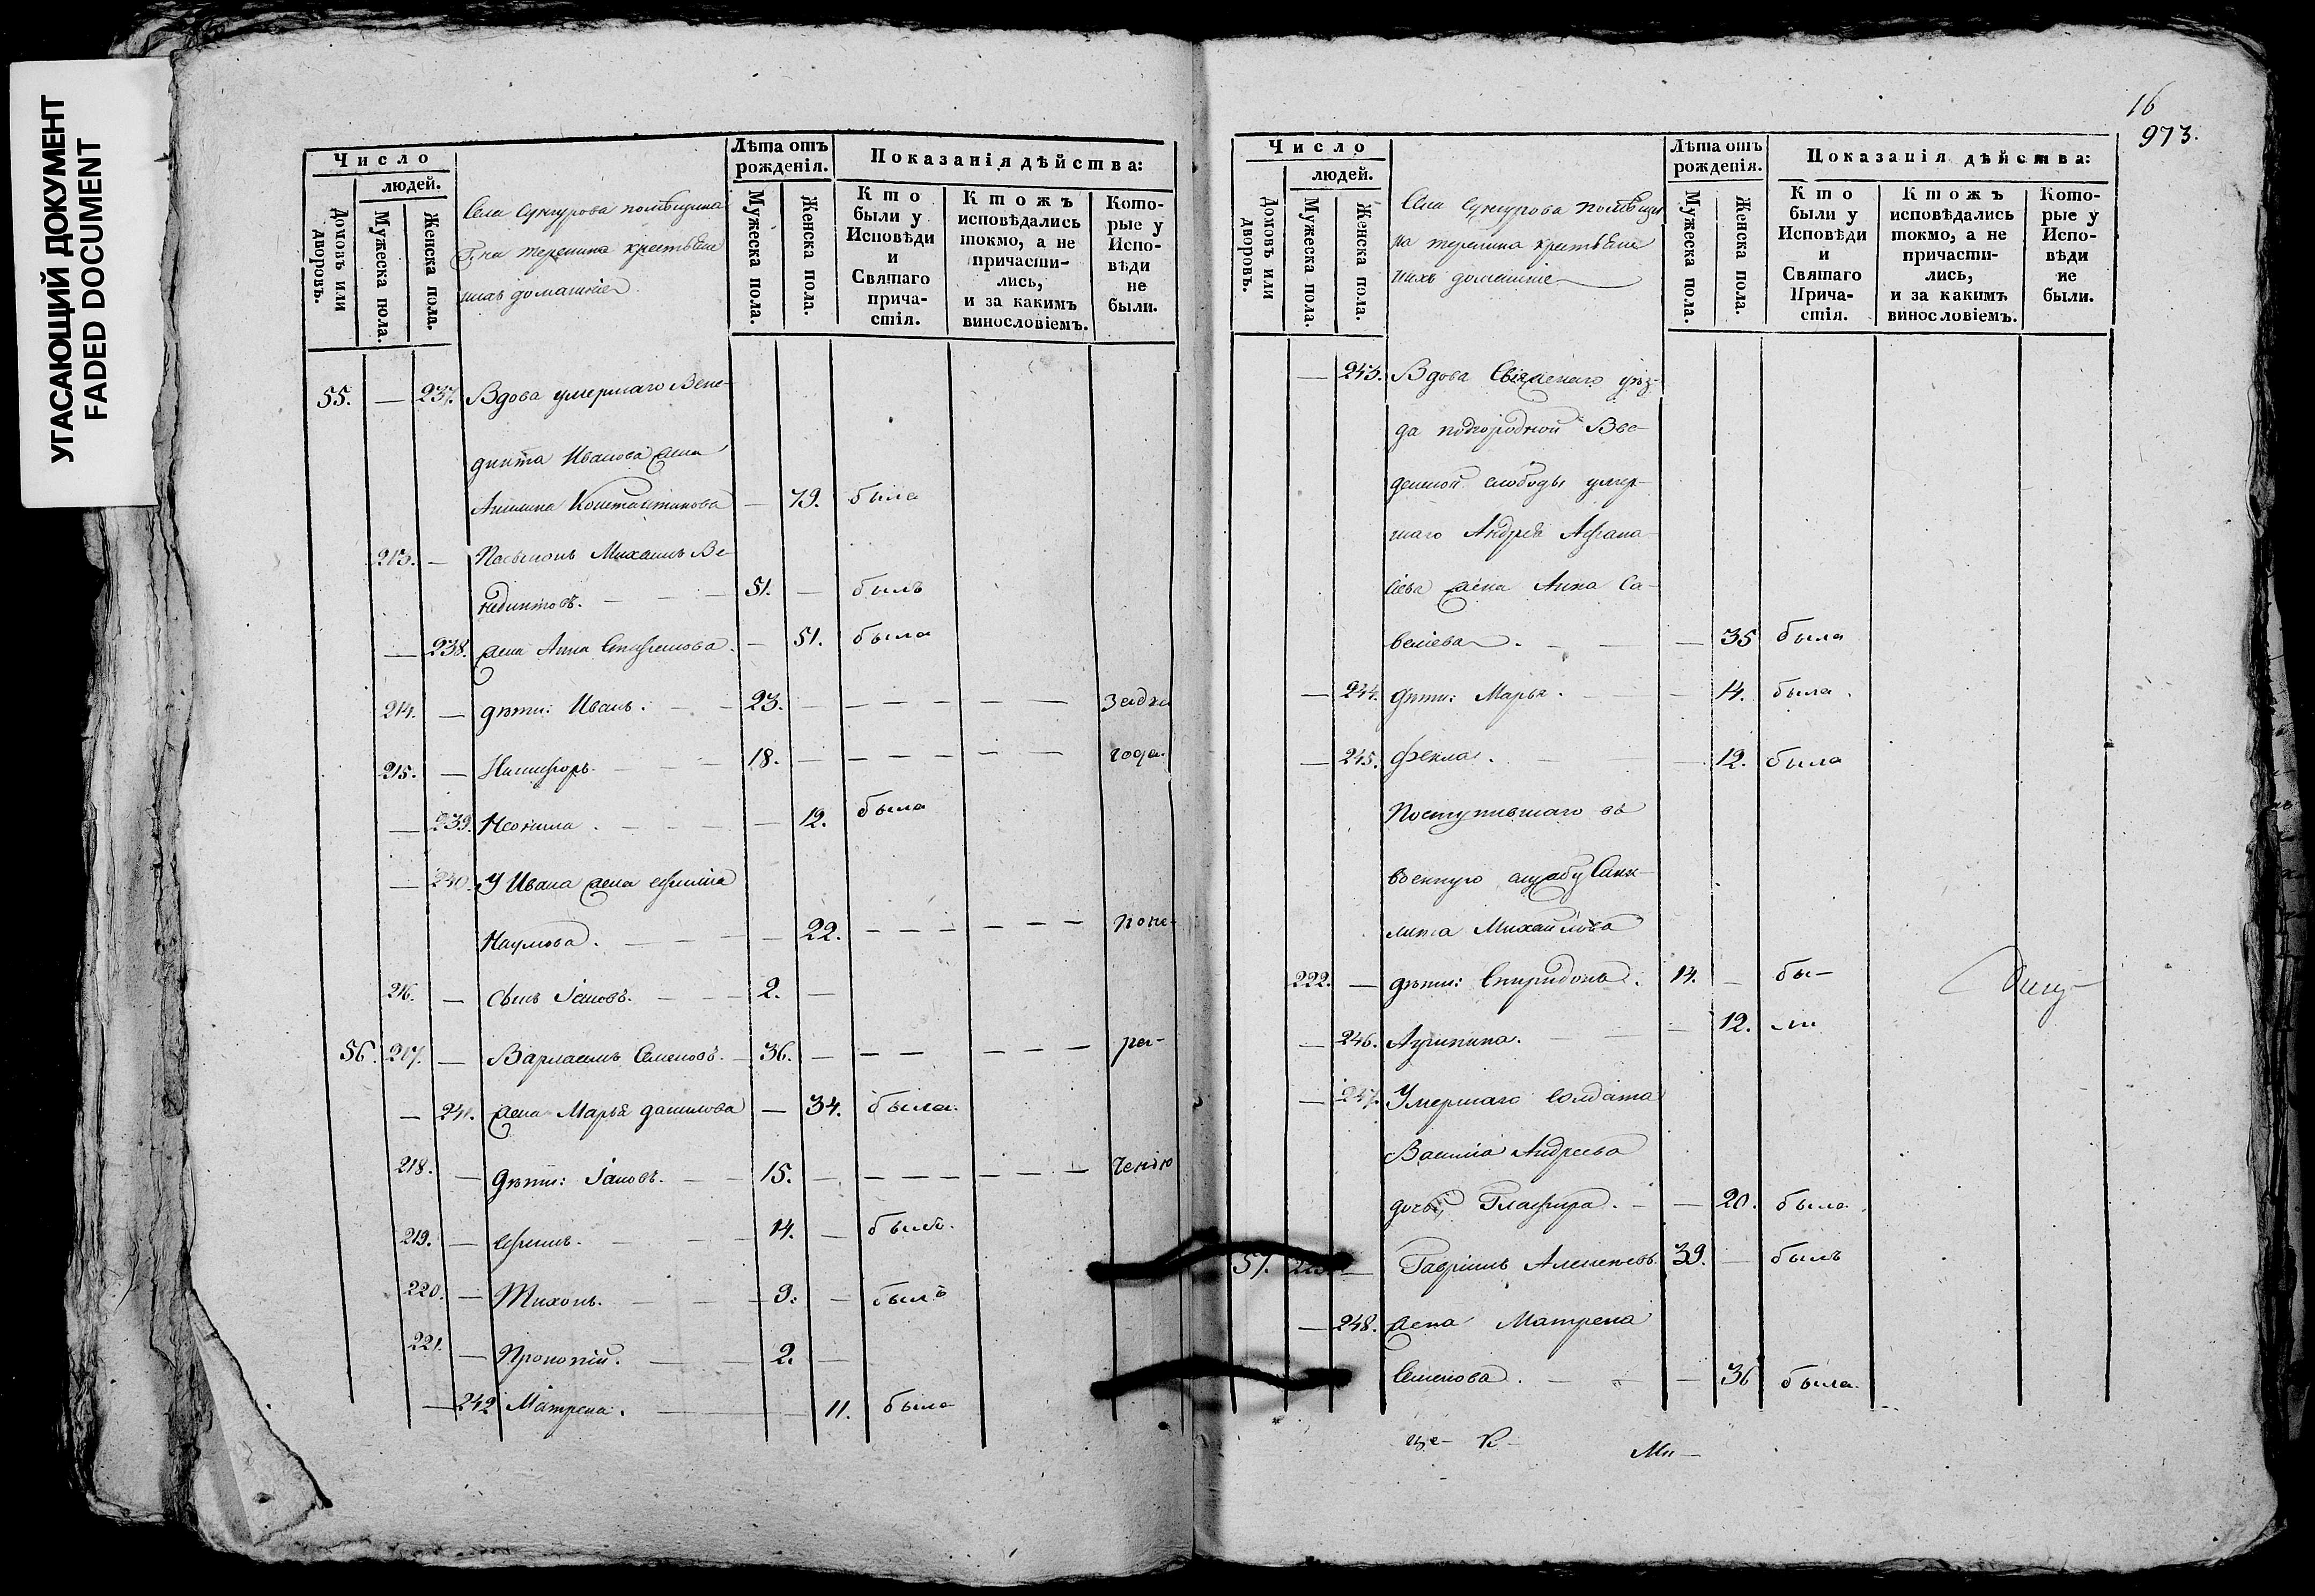 УГАСАЮЩИЙ ДОКУМЕНТ
FADED DOCUMENT
Число
людей.
Домовъ или дворовъ.
Мужеска пола.
Женска пола.
Села Сунгурова помѣщика
Г.на Теренина крестьяне
ихъ домашніе
Лѣта отъ рожденія.
Мужеска пола.
Женска пола.
Показанія дѣйства:
Кто были у Исповѣди и Святаго причастія.
Ктожъ исповѣдались токмо, а не причастились, и за какимъ винословіемъ.
Которые у Исповѣди не были.
55. — 237. Вдова умершаго Вене-
дикта Иванова жена
Константинова — 79. была
213. — Пасынокъ Михаилъ Ве-
недиктовъ. — 51. — былъ
— 238. жена Анна Стафеилова. — 51. была
214. — дѣти: Иванъ. — 23. — — — — — — —
215. — Никифоръ. — 18. — — — — — — года.
— 239. Неонила. — 12. была
— 240. У Ивана жена
Наумова. — 22. — — — — — — по не-
216. — сынъ Іаковъ. — 2. —
56. 217. — Варлаамъ Семеновъ. — 36. — — — — — — ра-
— 241. жена Марья Данилова — 34. была.
218. — дѣти: Іаковъ. — 15. — — — — — — ченію
219. — Ефимъ. — 14. — былъ.
220. — Тихонъ. — 9. — былъ
221. — Прокопій. — 2. —
— 242 Матрена. — 11. была
16
973.
Число
людей.
Домовъ или дворовъ.
Мужеска пола.
Женска пола.
Села Сунгурова помѣщи
ка Теренина крестьяне
ихъ домашніе
Лѣта отъ рожденія.
Мужеска пола.
Женска пола.
Показанія дѣйства:
Кто были у Исповѣди и Святаго Причастія.
Ктожъ исповѣдались токмо, а не причастились, и за какимъ винословіемъ.
Которые у Исповѣди не были.
— 243. Вдова Свіяжскаго уѣз-
да подгородной Вве-
денской слободы умер-
шаго Андрея Афана-
сіева жена Анна Са-
веліева. — — 35 была
— 244. дѣти: Марья. — 14. была.
— 245. Фекла. — 12. была
Поступившаго въ
военную службу
Михайлова
222. — дѣти: Спиридонъ. 14. — бы-
— 246. Акулина. — 12. ли
— 247. Умершаго солдата
Василія Андреева
дочь Глафира. — — 20. была
57. — Гавріилъ Алексѣевъ. 39. — былъ
— 248. жена Матрена
Семенова. — — 36 была.